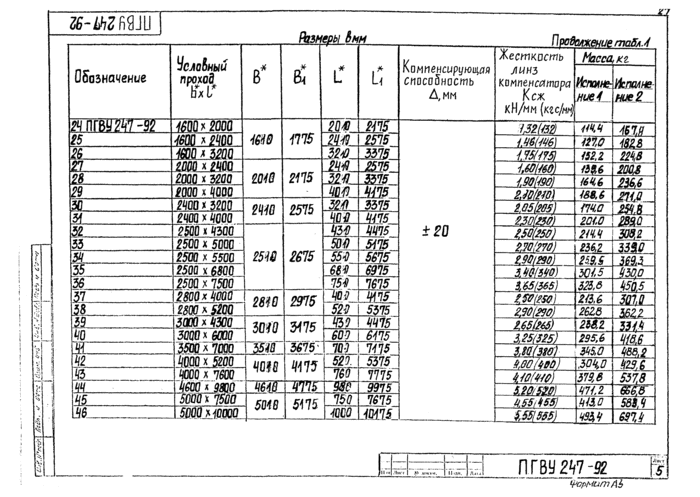 ПГВУ 247-92
Размеры в мм
Продолжение табл.1
Обозначение | Условный проход b* x l* | B* | B1* | L* | L1* | Компенсирующая способность Δ, мм | Жесткость линз компенсатора Ксж кН/мм (кгс/мм) | Масса, кг
Исполнение 1 | Исполнение 2
24 ПГВУ 247-92 | 1600 x 2000 | 1610 | 1775 | 2010 | 2175 | ± 20 | 1,32(132) | 114,4 | 167,4
25 | 1600 x 2400 | 2410 | 2575 | 1,46(146) | 127,0 | 182,8
26 | 1600 x 3200 | 3210 | 3375 | 1,75(175) | 152,2 | 224,8
27 | 2000 x 2400 | 2010 | 2175 | 2410 | 2575 | 1,60(160) | 139,6 | 200,8
28 | 2000 x 3200 | 3210 | 3375 | 1,90(190) | 164,6 | 236,6
29 | 2000 x 4000 | 4010 | 4175 | 2,10(210) | 188,6 | 271,0
30 | 2400 x 3200 | 2410 | 2575 | 3210 | 3375 | 2,05(205) | 174,0 | 254,8
31 | 2400 x 4000 | 4010 | 4175 | 2,30(230) | 201,0 | 289,0
32 | 2500 x 4300 | 2510 | 2675 | 4310 | 4475 | 2,50(250) | 214,4 | 308,2
33 | 2500 x 5000 | 5010 | 5175 | 2,70(270) | 236,2 | 339,0
34 | 2500 x 5500 | 5510 | 5675 | 2,90(290) | 259,5 | 369,3
35 | 2500 x 6800 | 6810 | 6975 | 3,40(340) | 301,5 | 430,0
36 | 2500 x 7500 | 7510 | 7675 | 3,65(365) | 323,8 | 450,5
37 | 2800 x 4000 | 2810 | 2975 | 4175 | 2,50(250) | 213,6 | 307,0
38 | 2800 x 5200 | 5375 | 2,90(290) | 262,8 | 362,2
39 | 3000 x 4300 | 3010 | 3175 | 4475 | 2,65(265) | 238,2 | 331,4
40 | 3000 x 6000 | 6175 | 3,25(325) | 295,6 | 418,6
41 | 3500 x 7000 | 3510 | 3675 | 7175 | 3,80(380) | 345,0 | 488,2
42 | 4000 x 5200 | 4010 | 4175 | 5375 | 4,00(400) | 304,0 | 429,6
43 | 4000 x 7600 | 7775 | 4,10(410) | 379,8 | 537,8
44 | 4600 x 9800 | 4610 | 4775 | 9975 | 5,20(520) | 471,2 | 666,8
45 | 5000 x 7500 | 5010 | 5175 | 7675 | 4,55(455) | 413,0 | 583,4
46 | 5000 x 10000 | 10175 | 5,55(555) | 493,4 | 697,4
ПГВУ 247-92
Лист
5
Формат А3